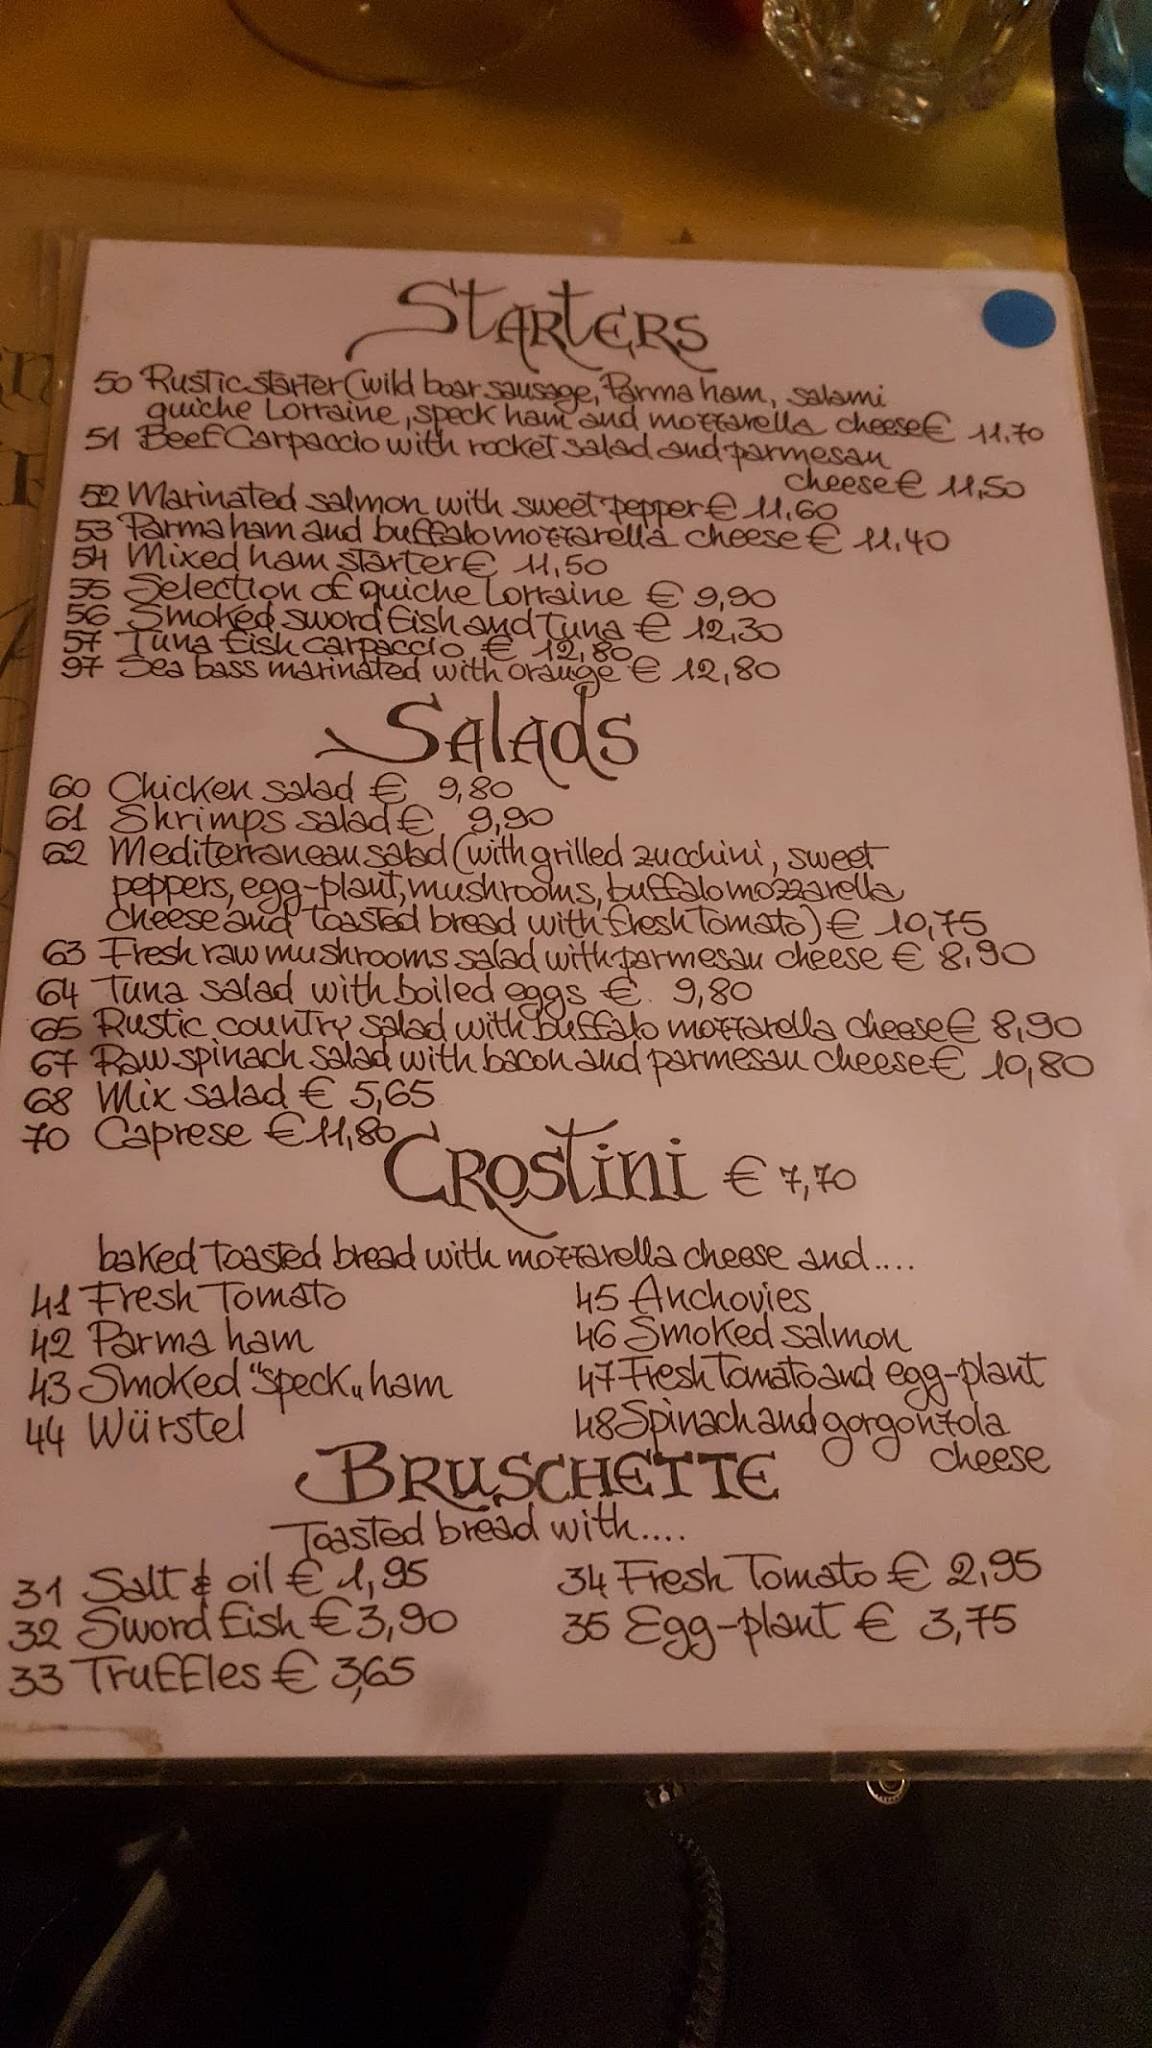 Starters
50 Rustic starter (wild boar sausage, Parma ham, salami
quiche Lorraine, speck ham and mozzarella cheese € 11,70
51 Beef Carpaccio with rocket salad and parmesan
cheese € 11,50
52 Marinated salmon with sweet pepper € 11,60
53 Parma ham and buffalo mozzarella cheese € 11,40
54 Mixed ham starter € 11,50
55 Selection of quiche Lorraine € 9,90
56 Smoked sword fish and Tuna € 12,30
57 Tuna fish carpaccio € 12,80
97 Sea bass marinated with orange € 12,80
Salads
60 Chicken salad € 9,80
61 Shrimps salad € 9,90
62 Mediterranean salad (with grilled zucchini, sweet
peppers, egg-plant, mushrooms, buffalo mozzarella
cheese and toasted bread with fresh tomato) € 10,75
63 Fresh raw mushrooms salad with parmesan cheese € 8,90
64 Tuna salad with boiled eggs € 9,80
65 Rustic country salad with buffalo mozzarella cheese € 8,90
67 Raw spinach salad with bacon and parmesan cheese € 10,80
68 Mix salad € 5,65
70 Caprese € 11,80
Crostini € 7,70
baked toasted bread with mozzarella cheese and....
41 Fresh Tomato
42 Parma ham
43 Smoked "speck" ham
44 Würstel
45 Anchovies
46 Smoked salmon
47 Fresh Tomato and egg-plant
48 Spinach and gorgonzola
cheese
BRUSCHETTE
Toasted bread with....
31 Salt & oil € 1,95
32 Sword fish € 3,90
33 Truffles € 3,65
34 Fresh Tomato € 2,95
35 Egg-plant € 3,75